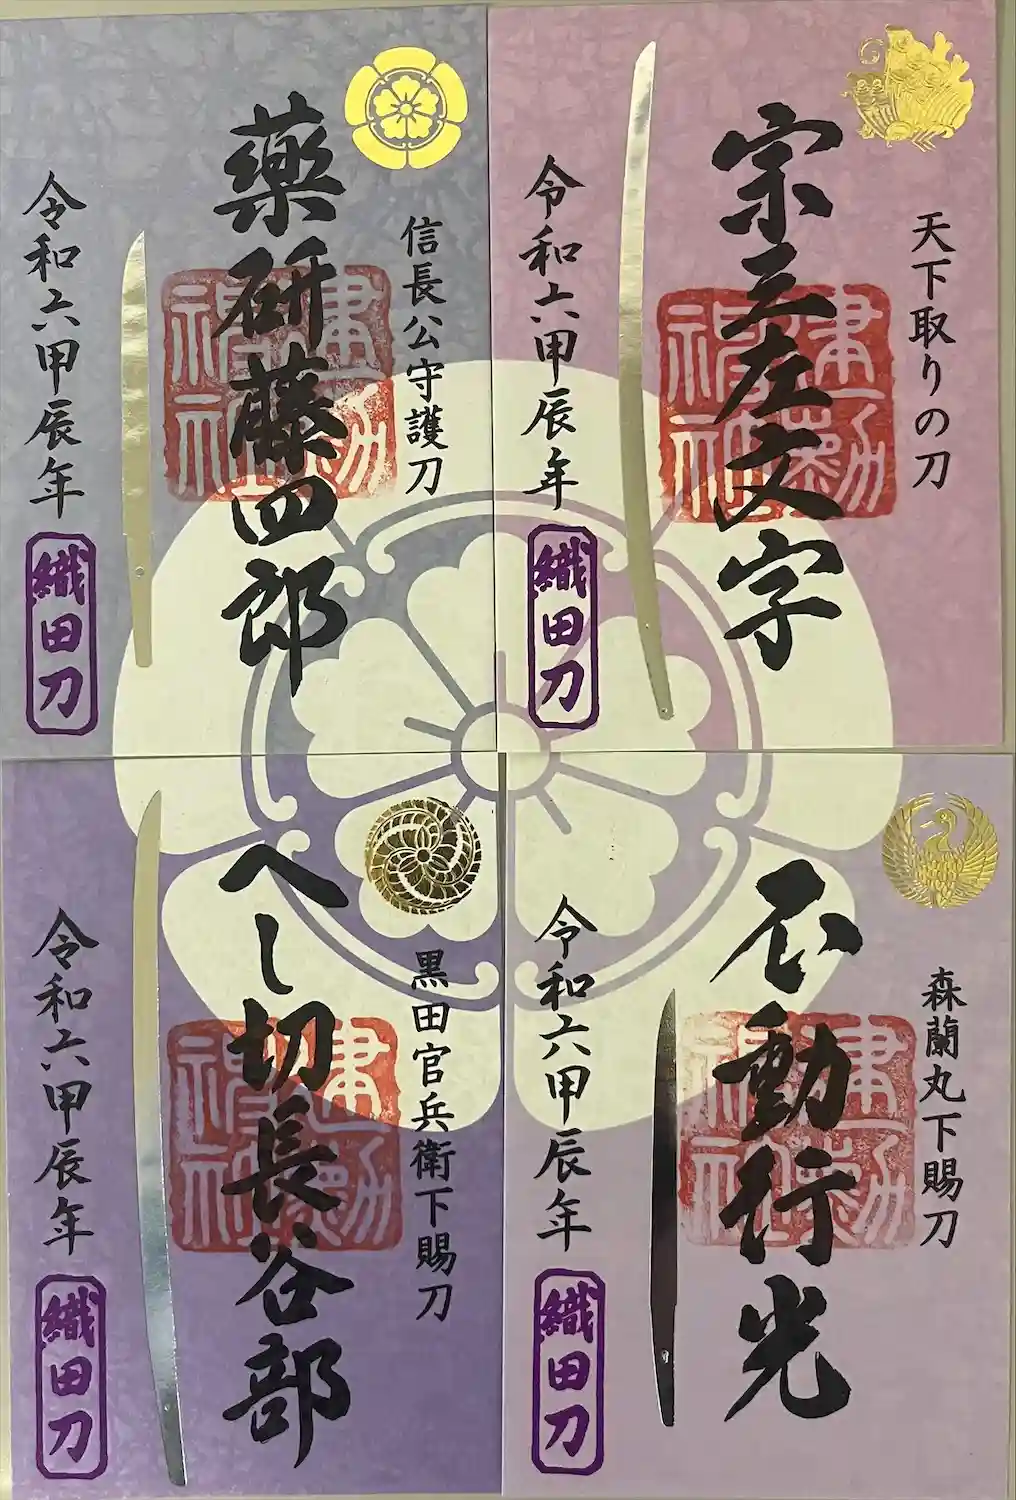 信長公守護刀
薬研藤四郎
令和六甲辰年
織田刀
建勲神社
天下取りの刀
宗三左文字
令和六甲辰年
織田刀
建勲神社
黒田官兵衛下賜刀
へし切長谷部
令和六甲辰年
織田刀
建勲神社
森蘭丸下賜刀
不動行光
令和六甲辰年
織田刀
建勲神社